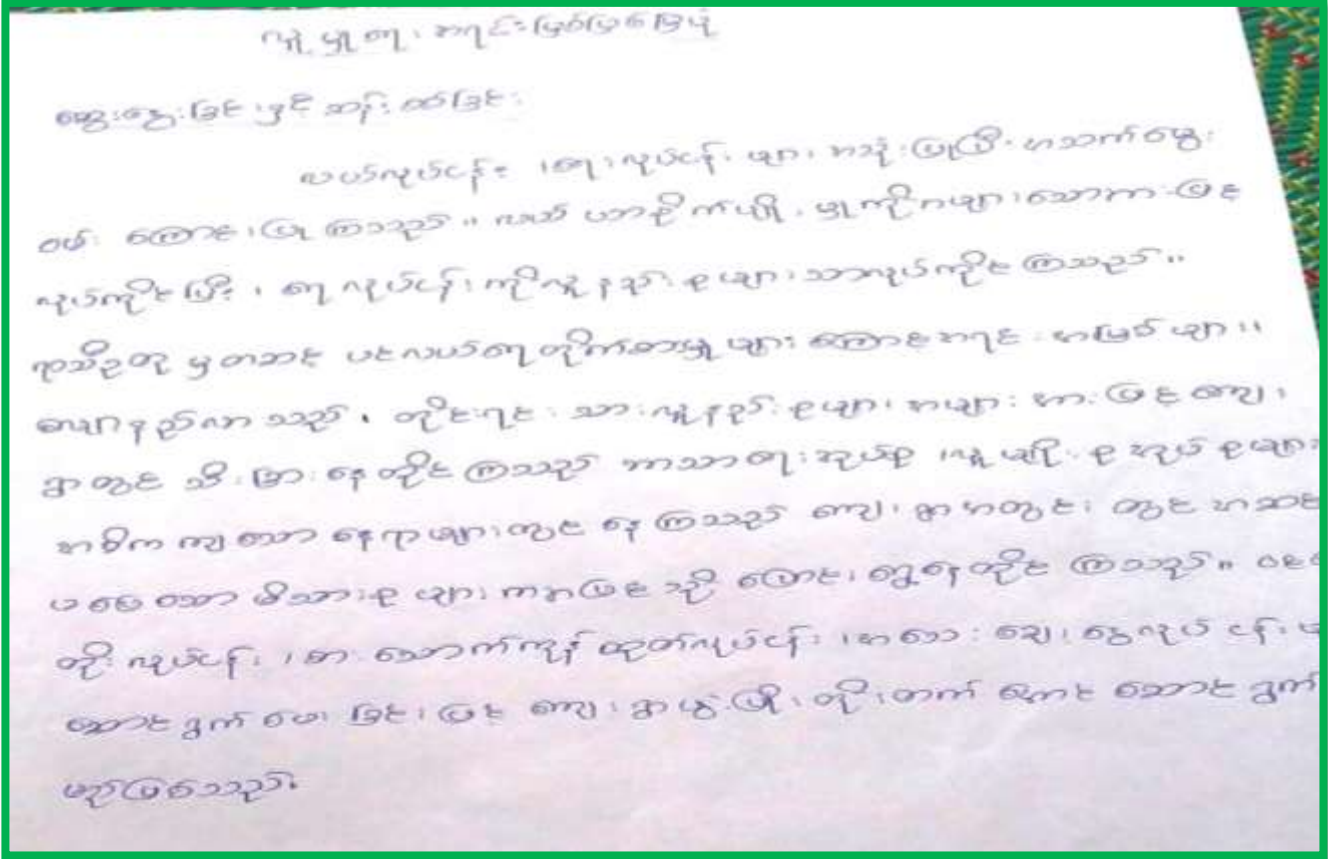 လူမှုရေး၊ အရင်းမြစ်ပြစ်မြေပုံ
ဆွေးနွေးခြင်းနှင့် ဆန်းစစ်ခြင်း
လယ်လုပ်ငန်း ၊ရေလုပ်ငန်းများ အသုံးပြုပြီး အသက်မွေး
ဝမ်းကျောင်းပြုကြသည်။ လယ်ယာစိုက်ပျိုး မှုကိုဂများသောကာဖြင့်
လုပ်ကိုင်ပြီး၊ ရေလုပ်ငန်းကိုလူနည်းစုများသာလုပ်ကိုင်ကြသည်။
ရာသီဥတု မှတဆင့် ပင်လယ်ရေတိုက်စားမှုများကြောင့်အရင်းအမြစ်များ။
လျော့နည်းလာသည်၊ တိုင်းရင်းသားလူနည်းစုများအများအားဖြင့်ကျေး
ရွာတွင် သီးခြားနေထိုင်ကြသည် ဘာသာရေးအုပ်စု ၊လူမျိုးစုအုပ်စုများ
အဓိကကျသော နေရာများတွင် နေကြသည် ကျေးရွာအတွင်းတွင် အဆင်
မပြေသောမိသားစုများကအခြင့်သို့ ပြောင်းရွှေ့နေထိုင်ကြသည်။ ဝင်ငွေ
တိုးလုပ်ငန်း ၊စားသောက်ကုန်ထုတ်လုပ်ငန်း ၊အသေးချေးငွေလုပ်ငန်း
ဆောင်ရွက်ပေးခြင်းဖြင့် ကျေးရွာဖွံ့ဖြိုးတိုးတက်အောင် ဆောင်ရွက်
မည်ဖြစ်သည်။